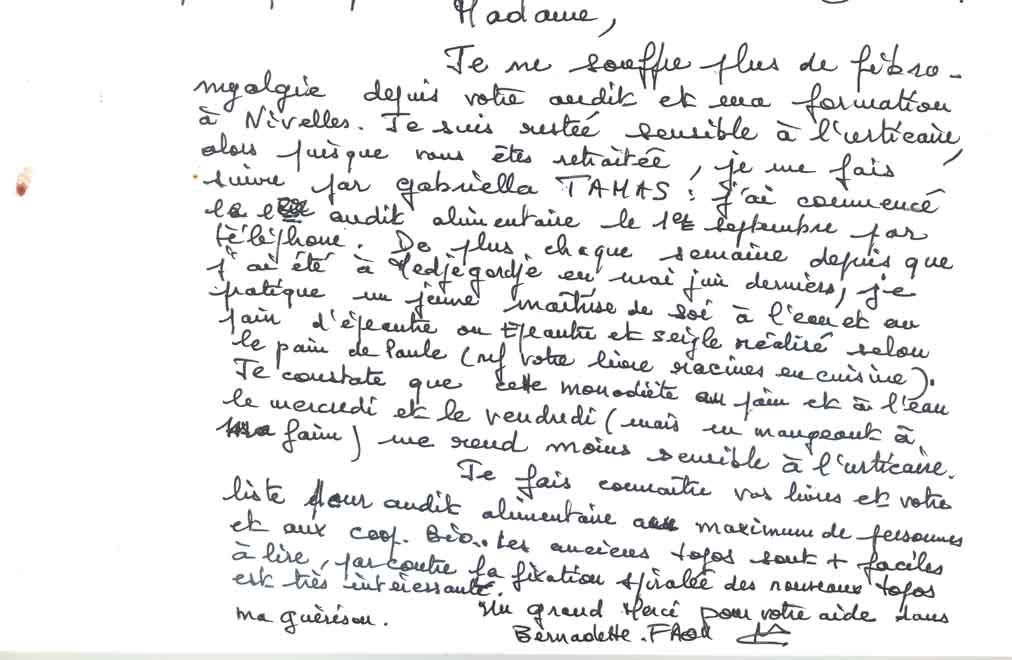 Madame,
Je ne souffre plus de fibro-
myalgie depuis votre audit et ma formation
à Nivelles. Je suis restée sensible à l'urticaire,
alors puisque vous êtes retraitée, je me fais
suivre par gabriella TAMAS : j'ai commencé
audit alimentaire le 1er septembre par
téléphone. De plus, chaque semaine depuis que
j'ai été à Medjègordjè en mai juin derniers, je
pratique un jeûne maîtrise de soi à l'eau et au
pain d'épeautre ou Epeautre et seigle réalisé selon
le pain de Paule (réf votre livre racines en cuisine).
Je constate que cette monodiète au pain et à l'eau
le mercredi et le vendredi (mais en mangeant à
ma faim) me rend moins sensible à l'urticaire.
Je fais connaître vos livres et votre
liste pour audit alimentaire au maximum de personnes
et aux coop. Bio.. Les anciens topos sont + faciles
à lire, par contre la fixation spiralée des nouveaux topos
est très intéressante.
Un grand Merci pour votre aide dans
ma guérison.
Bernadette.